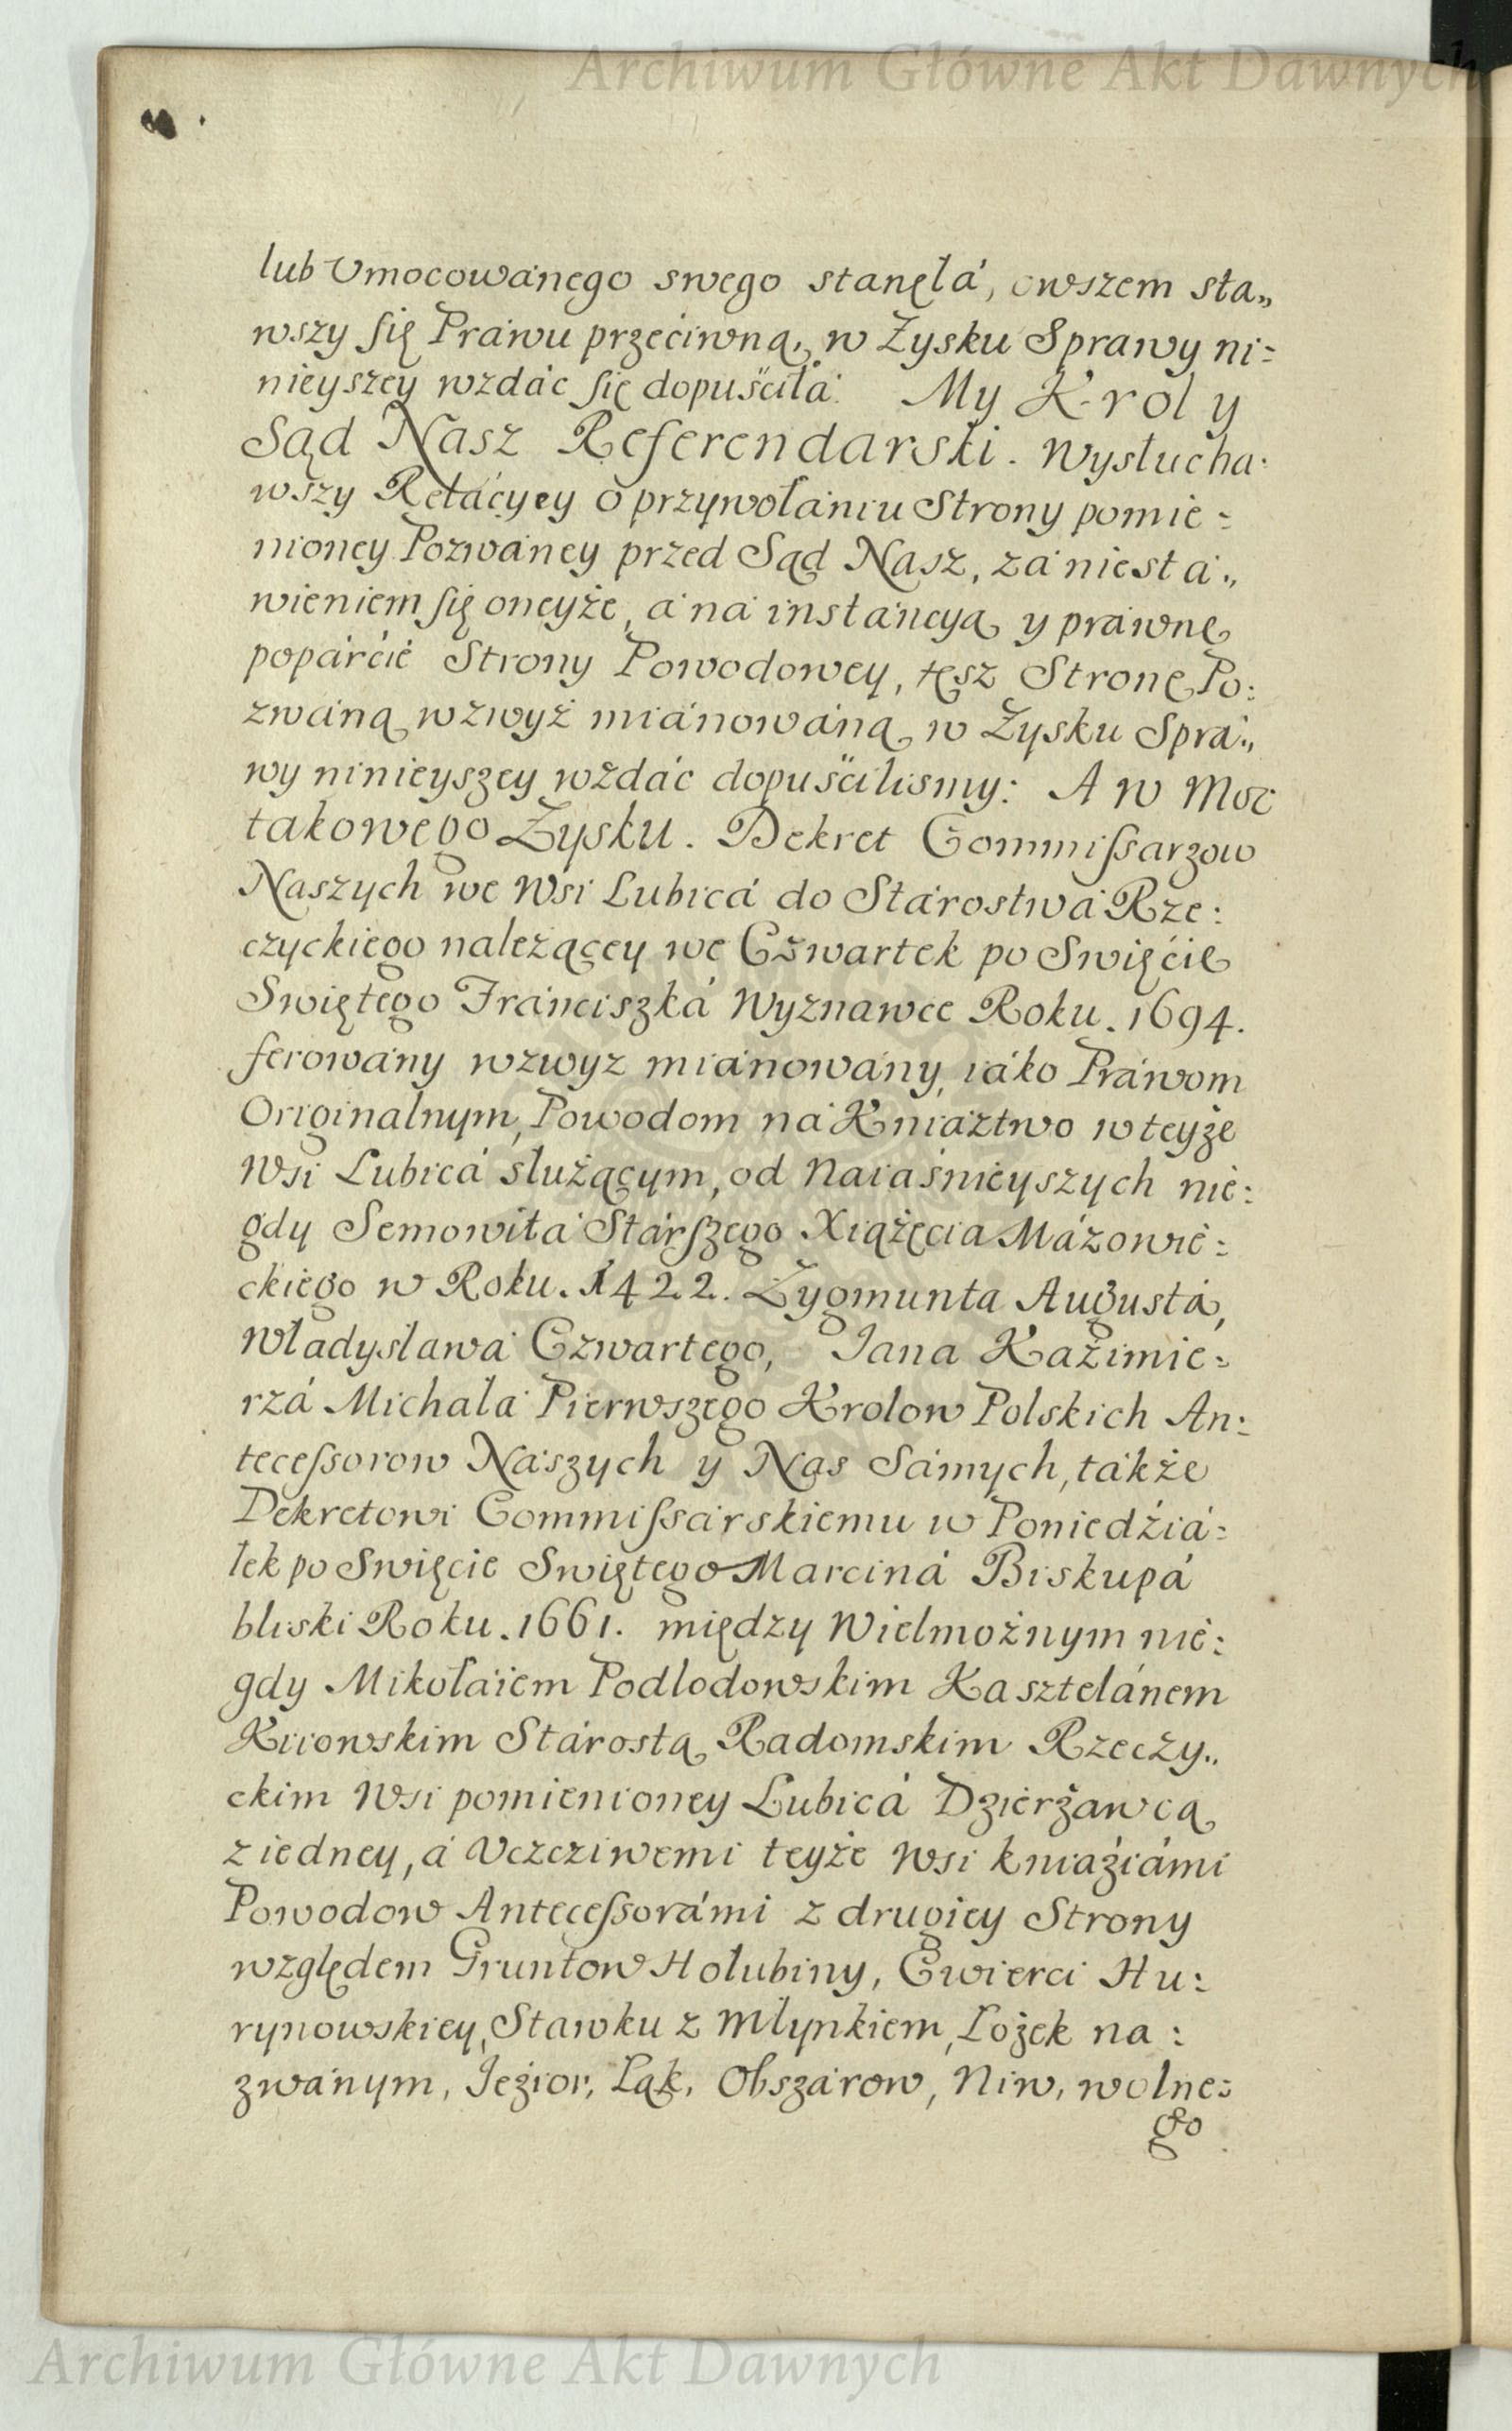 Archiwum Główne Akt Dawnych
lub Vmocowánego swego stanęłá, owszem sta„
wszy się Práwu przećiwną, w Zysku Sprawy ni=
nieyszey wzdác się dopuśćiłá: My Krol y
Sąd Nasz Referendarski. Wysłucha:
wszy Relácyey o przywołániu Strony pomie=
nioney Pozwáney przed Sąd Nasz, zá niestá„
wieniem się oneyże, á ná instáncyą y práwnę
popárćié Strony Powodowey, tęsz Stronę Po:
zwáną wzwyż miánowáną w Zysku Sprá„
wy ninieyszey wzdác dopuśćilismy: A w Moc
takowego Zysku. Dekret Commissarzow
Naszych we Wsi Lubicá do Stárostwá Rze:
czyckiego należącey we Czwartek po Swięćie
Swiętego Fránciszká Wyznawce Roku. 1694.
ferowány wzwyz miánowány, iáko Práwom
Originalnym, Powodom ná Kniáztwo w teyże
Wsi Lubicá służącym, od Naiáśnieyszych nie:
gdy Semowitá Stárszego Xiążęcia Mázowie:
ckiego w Roku. 1422. Zygmunta Augustá,
Władysławá Czwartego, Iana Kaźimie:
rzá Michałá Pierwszego Krolow Polskich An:
tecessorow Nászych y Nas Sámych, tákże
Dekretowi Commissárskiemu w Poniedźiá=
łek po Swięcie Swiętego Marciná Biskupá
bliski Roku. 1661. między Wielmożnym nie:
gdy Mikołáiem Podlodowskim Kasztelánem
Kiiowskim Stárostą Radomskim Rzeczy„
ckim Wsi pomienioney Lubicá Dzierżawcą
z iedney, á Vczciwemi teyże Wsi kniaźiámi
Powodow Antecessorámi z drugiey Strony
względem Gruntow Hołubiny, Cwierci Hu:
rynowskiey, Stawku z Młynkiem, Łożek na:
zwánym, Ieźior, Łąk, Obszárow, Niw, wolne:
go
Archiwum Główne Akt Dawnych